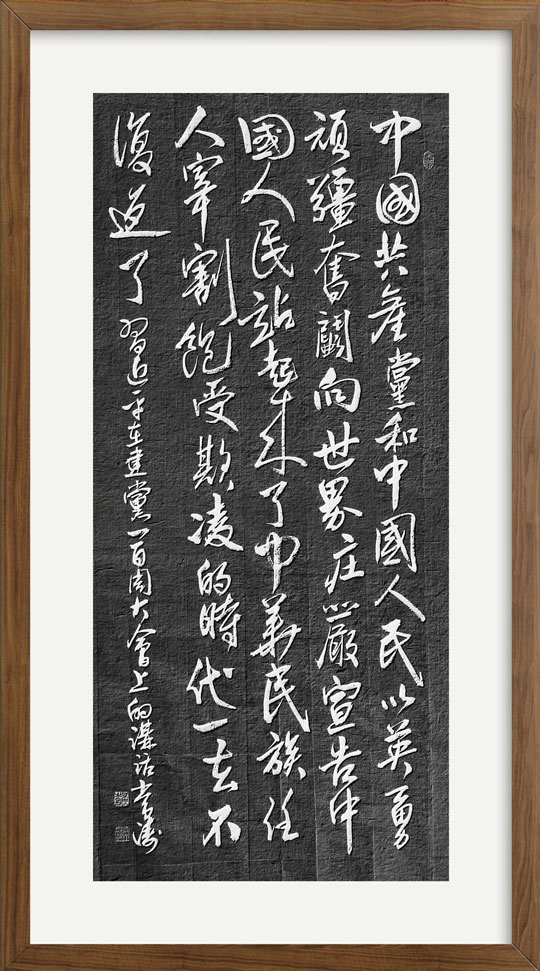 中國共產黨和中國人民以英勇
頑疆奮鬭向世界庄嚴宣告中
國人民站起來了中華民族任
人宰割飽受欺凌的時代一去不
復返了 習近平在建黨一百周大會上的講話